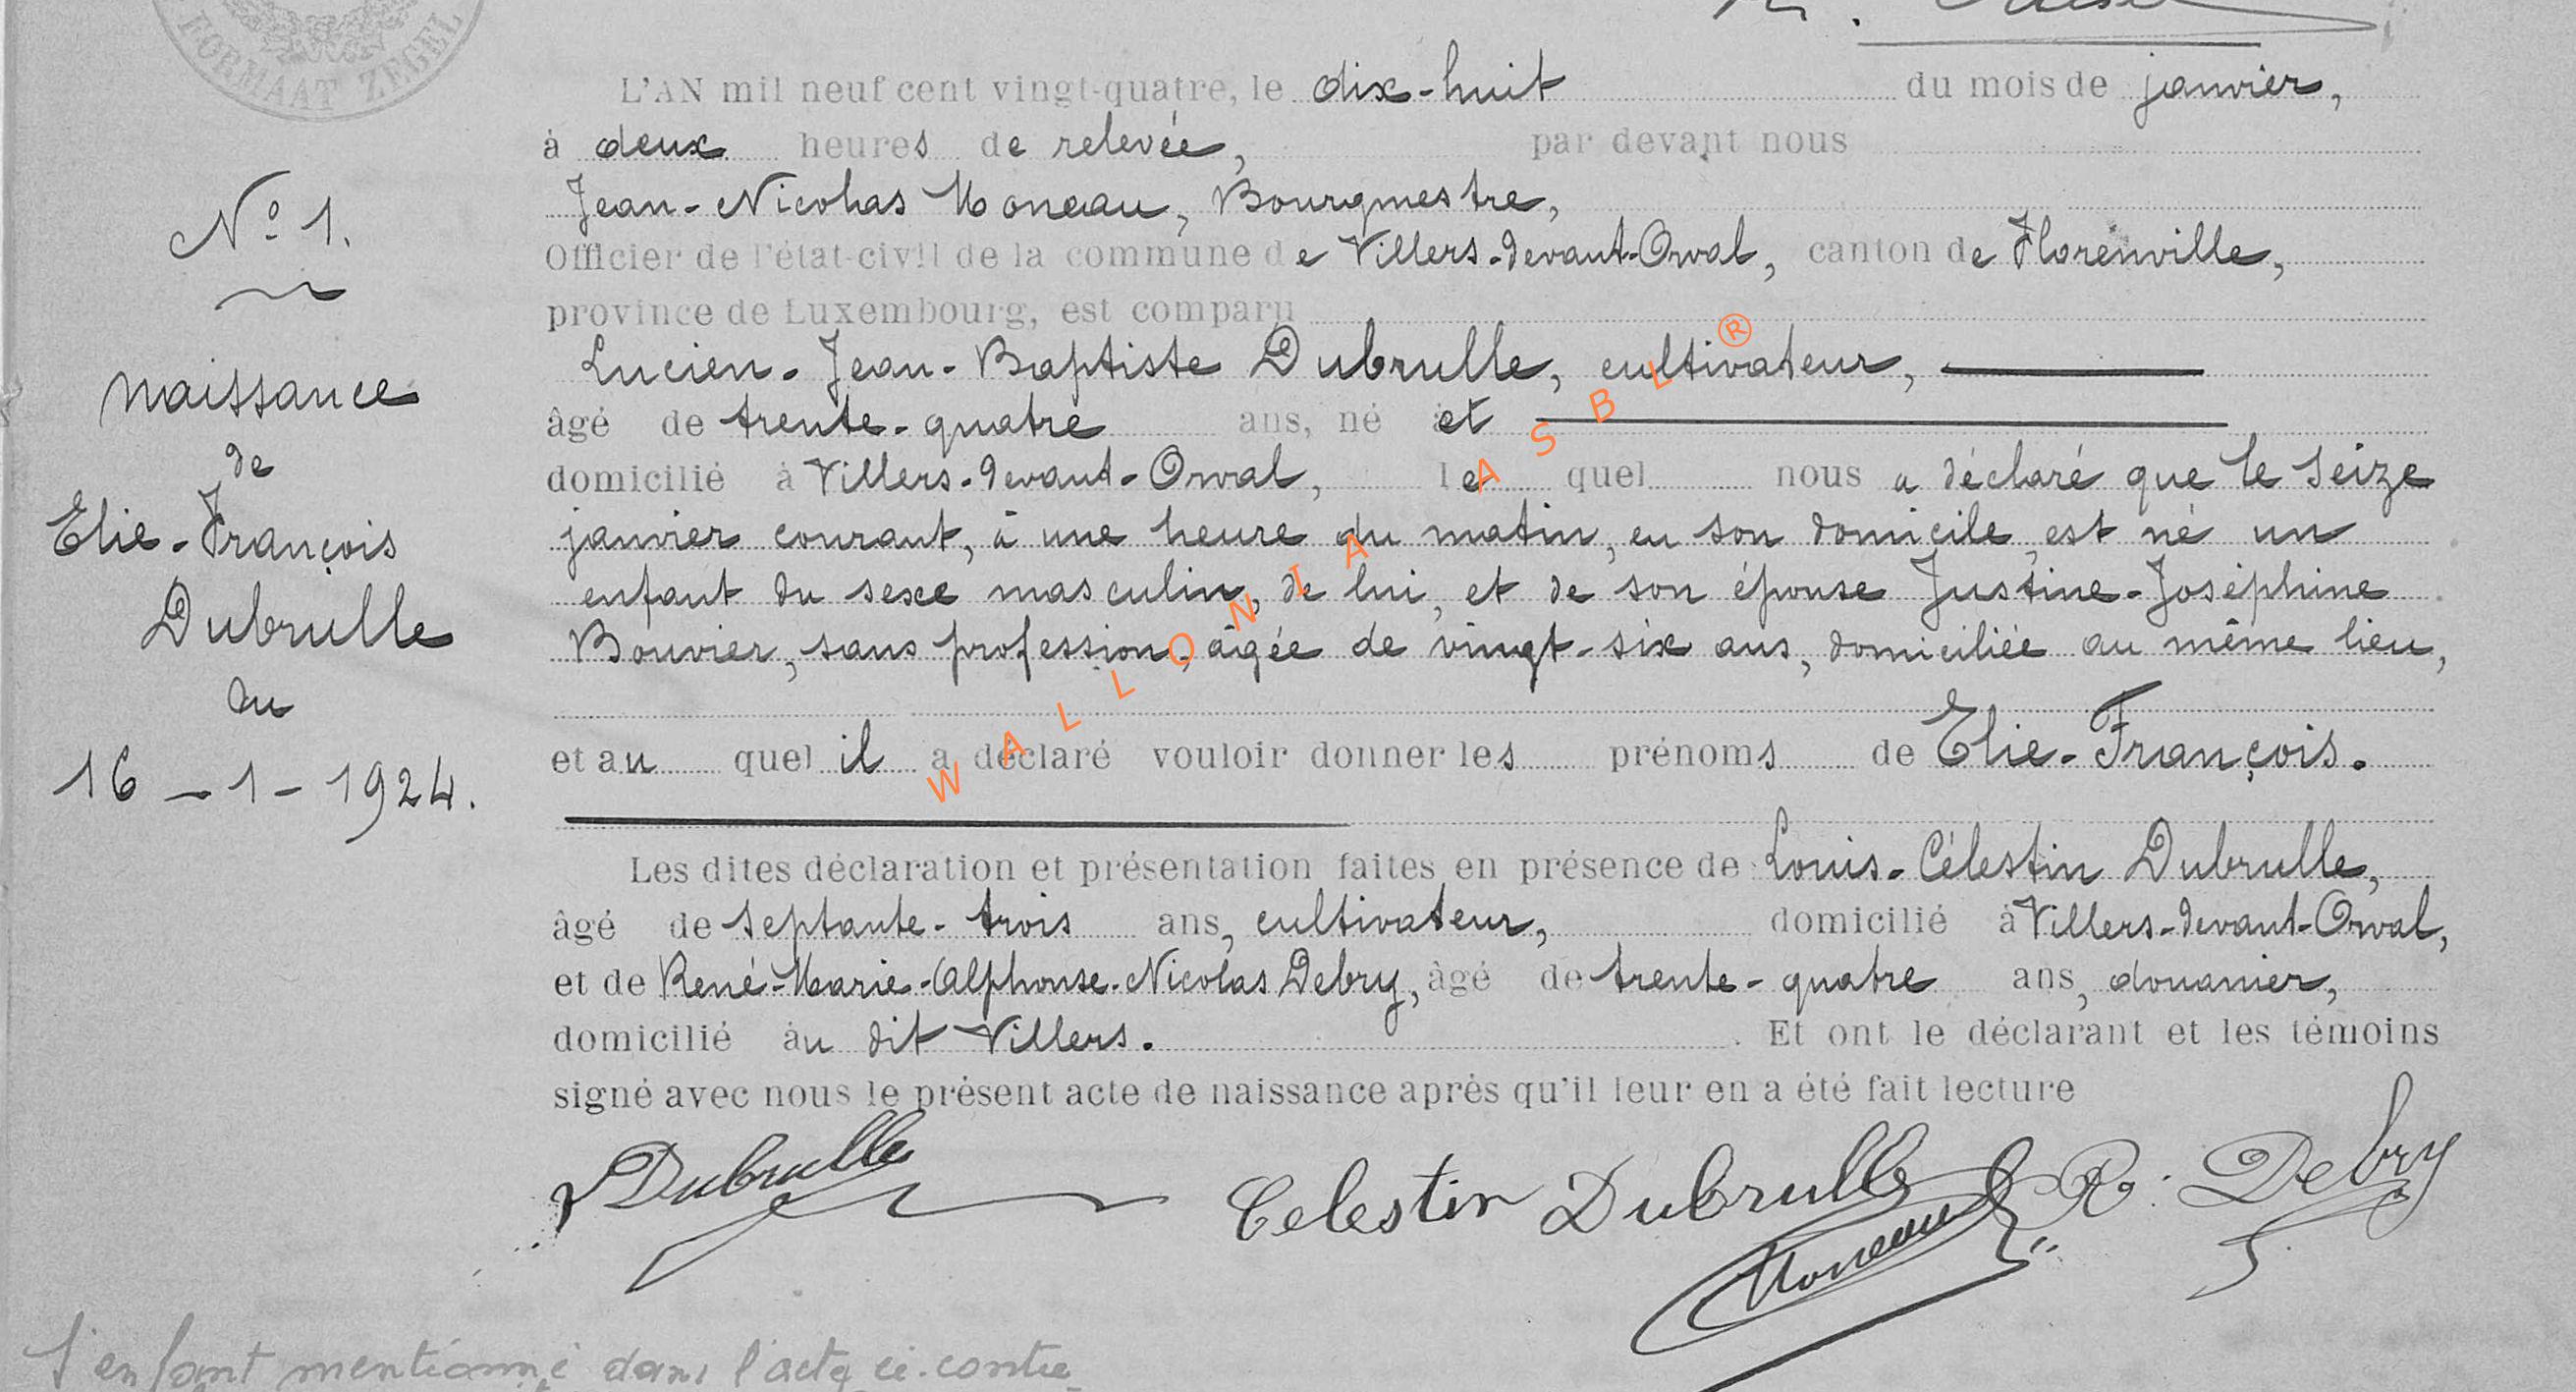 FORMAAT ZEGEL
L'AN mil neuf cent vingt-quatre, le dix-huit du mois de janvier,
à deux heures de relevée, par devant nous
Jean-Nicolas Moneau, Bourgmestre,
Officier de l'état-civil de la commune de Villers-devant-Orval, canton de Florenville,
province de Luxembourg, est comparu
Lucien-Jean-Baptiste Dubrulle, cultivateur,
âgé de trente-quatre ans, né et
domicilié à Villers-devant-Orval, lequel nous a déclaré que le seize
janvier courant, à une heure du matin, en son domicile, est né un
enfant du sexe masculin, de lui, et de son épouse Justine-Joséphine
Bouvier, sans profession, âgée de vingt-six ans, domiciliée au même lieu,
et au quel il a déclaré vouloir donner les prénoms de Elie-François.
Les dites déclaration et présentation faites en présence de Louis-Célestin Dubrulle,
âgé de septante-trois ans, cultivateur, domicilié à Villers-devant-Orval,
et de René-Marie-Alphonse-Nicolas Debry, âgé de trente-quatre ans, douanier,
domicilié au dit Villers. Et ont le déclarant et les témoins
signé avec nous le présent acte de naissance après qu'il leur en a été fait lecture
LDubrulle Celestin Dubrulle R. Debry
Moneau
N° 1.
naissance
de
Elie-François
Dubrulle
du
16-1-1924.
L'enfant mentionné dans l'acte ci-contre
WALLONIA ASBL ®